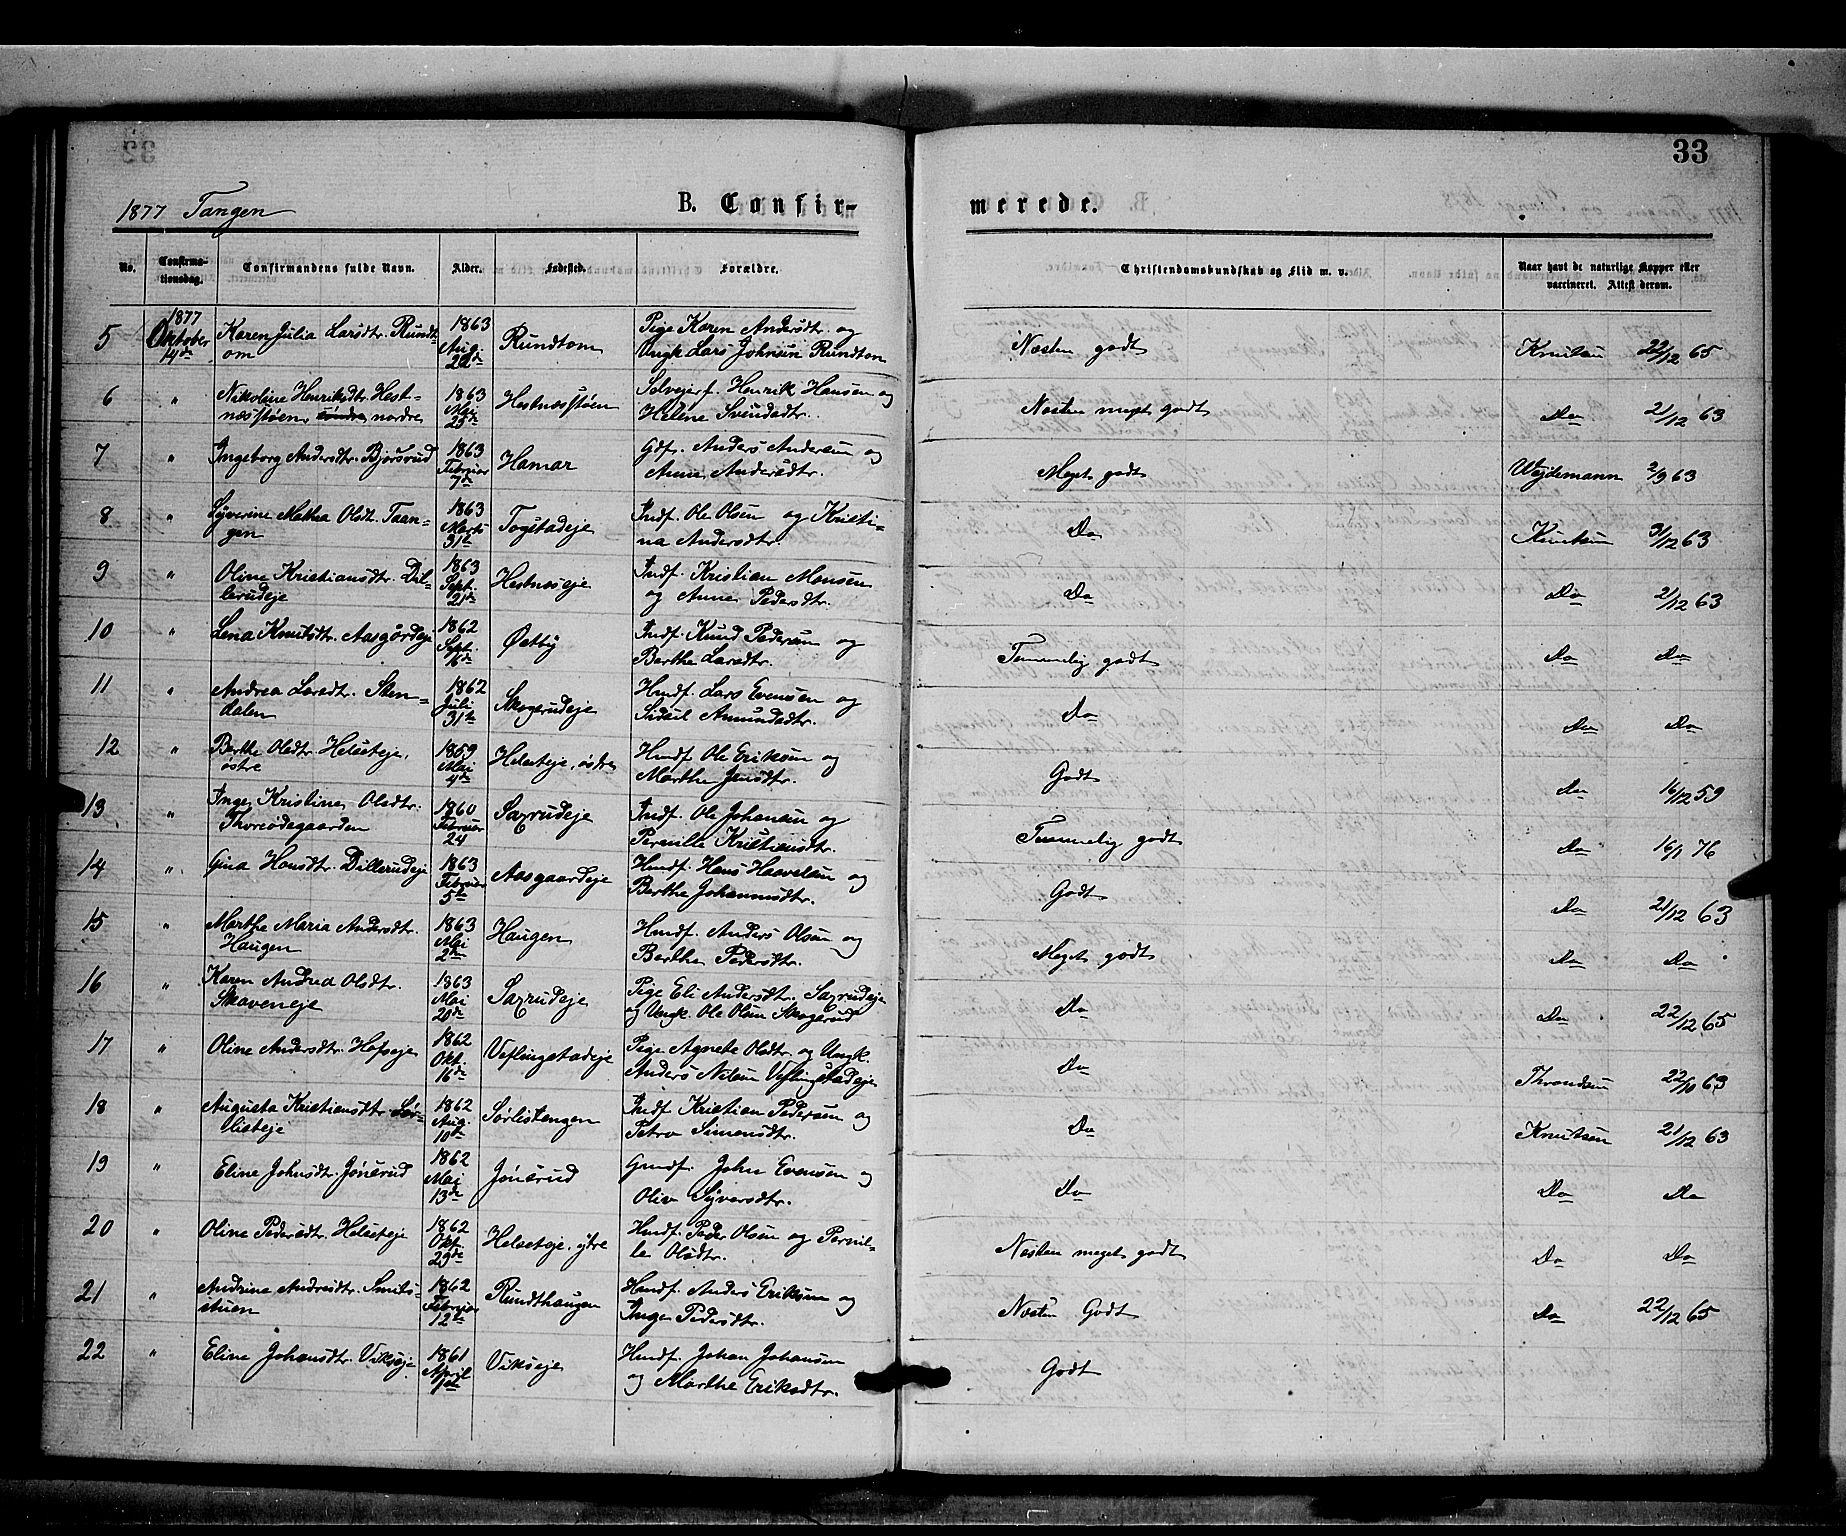 33
1877 Tangen
B. Confir-
merede.
No.
Confirma-
tionsdag.
Confirmandens fulde Navn.
Alder.
Fødested.
Forældre.
Christendomskundskab og Flid m. v.
Naar havt de naturlige Kopper eller
vaccineret. Attest derom.
5 1877 Oktober 14de Karen Julia Larsdtr. Rundt-
om 1863 Aug. 22de Rundtom Pige Karen Andersdtr. og
Ungk. Lars Johnsen Rundtom Næsten godt Knutsen 22/12 65
6 " Nikoline Henriksdtr. Hest-
næsstøen, søndre nordre 1863 Mai 23de Hestnæsstøen Selvejerf. Henrik Hansen og
Helene Svendsdtr. Næsten meget godt Do 21/12 63
7 " Ingeborg Andersdtr. Bjørsrud 1863 Februar 7de Hamar Gdf. Anders Andersen og
Anne Andersdtr. Meget godt Wejdemann 2/9 63
8 " Syverine Mathea Olsdtr. Taan-
gen 1863 Marts 31te Togstadeje Indf. Ole Olsen og Kristi-
na Andersdtr. Do Knutsen 31/12 63
9 " Oline Kristiansdtr. Dil-
lerudeje 1863 Sept. 21de Hestnæseje Indf. Kristian Monsen
og Anne Pedersdtr. Do Do 21/12 63
10 " Lena Knutsdtr. Aasgårdeje 1862 Sept. 16de Østby Indf. Knud Pedersen og
Berthe Larsdtr. Temmelig godt Do Do
11 " Andrea Larsdtr. Sten-
dalen 1862 Juli 31te Skogerudeje Husf. Lars Evensen og
Sidsil Amundsdtr. Do Do Do
12 " Berthe Olsdtr. Helseteje,
østre 1859 Mai 4de Helseteje, østre Husf. Ole Eriksen og
Marthe Jensdtr. Godt Do 16/12 59
13 " Inge Kristine Olsdtr.
Thoreødegaarden 1860 Februar 24 Saxrudeje Indf. Ole Johansen og
Pernille Kristiansdtr. Temmelig godt Do 16/1 76
14 " Gina Hansdtr. Dillerudeje 1863 Februar 5te Aasgaardeje Husf. Hans Haavelsen og
Berthe Johannesdtr. Godt Do 21/12 63
15 " Marthe Maria Andersdtr.
Haugen 1863 Mai 2den Haugen Husf. Anders Olsen og
Berthe Pedersdtr. Meget godt Do Do
16 " Karen Andrea Olsdtr.
Skaveneje 1863 Mai 20de Saxrudeje Pige Eli Andersdtr. Saxrudeje
og Ungk. Ole Olsen Skogerud Do Do 22/12 65
17 " Oline Andersdtr. Hofseje 1862 Okt. 16de Veflingstadeje Pige Agnete Olsdtr. og Ungk.
Anders Nilsen Veflingstadeje Do Throndsen 22/10 63
18 " Augusta Kristiansdtr. Sør-
listeje 1862 Aug. 10de Sørlistengen Indf. Kristian Pedersen og
Petra Simensdtr. Do Knutsen 21/12 63
19 " Eline Johnsdtr. Jønsrud 1862 Mai 13de Jønsrud Gmdf. John Evensen og
Oliv Syversdtr. Do Do Do
20 " Oline Pedersdtr. Helseteje 1862 Okt. 29de Helseteje, ytre Husf. Peder Olsen og Pernil-
le Olsdtr. Næsten meget godt Do Do
21 " Andrine Andersdtr. Smids-
stuen 1862 Februar 12te Rundthaugen Husf. Anders Eriksen og
Inge Pedersdtr. Næsten Godt Do 22/12 65
22 " Eline Johansdtr. Vikseje 1861 April 1ste Vikseje Husf. Johan Johansen
og Marthe Eriksdtr. Godt